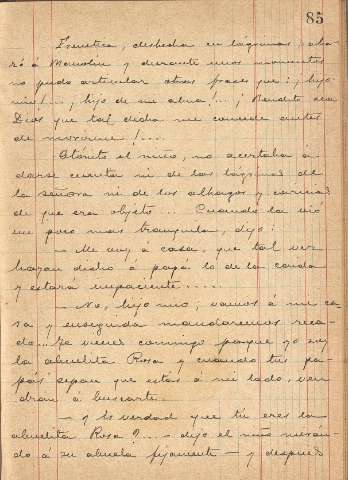 85
Frenética, deshecha en lágrimas abra-
zó á Manolín y durante unos momentos
no pudo articular otras frases que: ¡hijo
mío!..., ¡hijo de mi alma!...; ¡Bendito sea
Dios que tal dicha me concede antes
de morirme!...
Atónito el niño, no acertaba á
darse cuenta ni de las lágrimas de
la señora ni de los alhagos y caricias
de que era objeto... Cuando la vió
un poco mas tranquila, dijo:
— Me voy á casa, que tal vez
hayan dicho á papá lo de la caida
y estará impaciente.....
— No, hijo mio; vamos á mi ca-
sa y enseguida mandaremos reca-
do... Ya vienes conmigo porque yo soy
la abuelita Rosa y cuando tus pa-
pás sepan que estas á mi lado, ven-
drán á buscarte.
— ¿Y es verdad que tú eres la
abuelita Rosa?... — dijo el niño mirán-
do á su abuela fijamente — y después